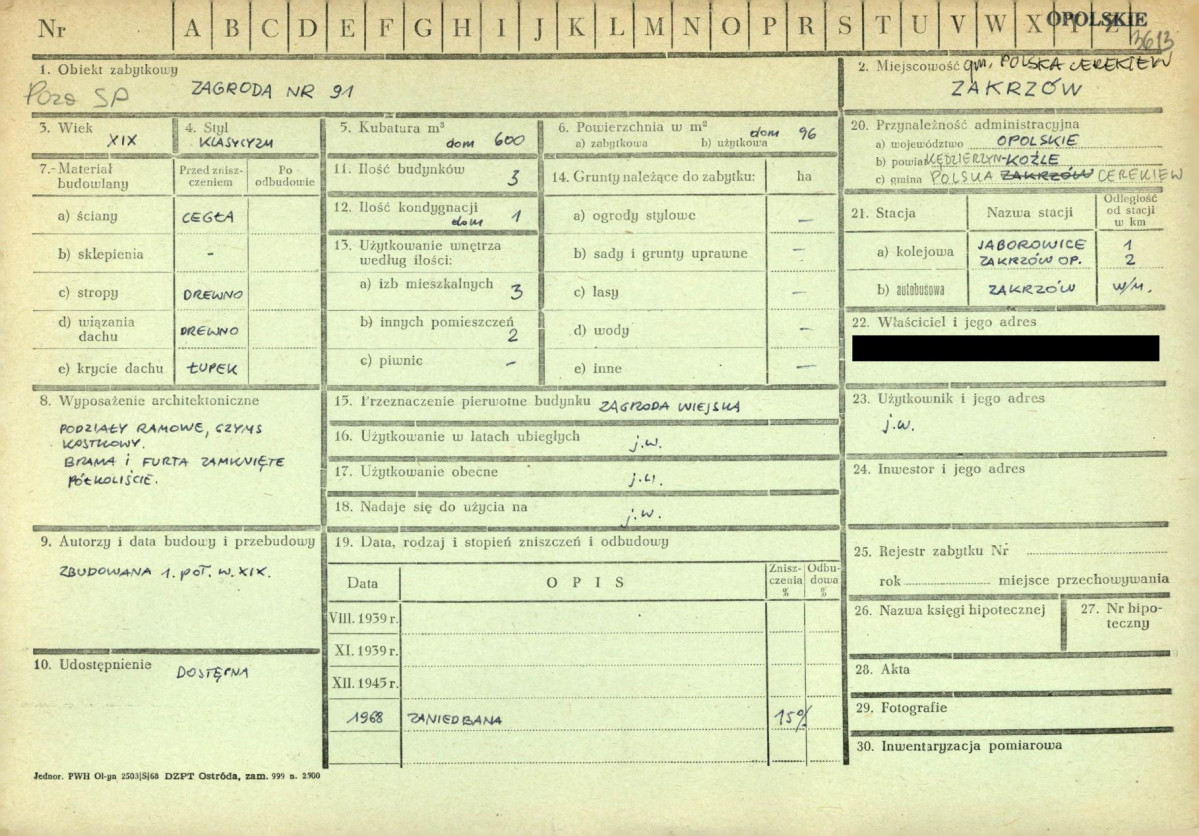 Nr A B C D E F G H I J K L M N O P R S T U V W X Y Z OPOLSKIE
3613
1. Obiekt zabytkowy
ZAGRODA NR 91
2. Miejscowość gm. POLSKA CEREKIEW
ZAKRZÓW
3. Wiek
XIX
4. Styl
KLASYCYZM
5. Kubatura m³
dom 600
6. Powierzchnia w m²
a) zabytkowa b) użytkowa
dom 96
20. Przynależność administracyjna
a) województwo OPOLSKIE
b) powiat KĘDZIERZYN-KOŹLE
c) gmina POLSKA ZAKRZÓW CEREKIEW
7.- Materiał budowlany
Przed zniszczeniem
Po odbudowie
a) ściany CEGŁA
b) sklepienia -
c) stropy DREWNO
d) wiązania dachu DREWNO
e) krycie dachu ŁUPEK
11. Ilość budynków
3
12. Ilość kondygnacji
dom 1
13. Użytkowanie wnętrza
według ilości:
a) izb mieszkalnych 3
b) innych pomieszczeń
2
c) piwnic -
14. Grunty należące do zabytku: ha
a) ogrody stylowe —
b) sady i grunty uprawne —
c) lasy —
d) wody —
e) inne —
21. Stacja Nazwa stacji Odległość od stacji w km
a) kolejowa JABOROWICE 1
ZAKRZÓW OP. 2
b) autobusowa ZAKRZÓW w/m.
22. Właściciel i jego adres
8. Wyposażenie architektoniczne
PODZIAŁY RAMOWE, GZYMS
KOSTKOWY.
BRAMA i FURTA ZAMKNIĘTE
PÓŁKOLIŚCIE.
15. Przeznaczenie pierwotne budynku ZAGRODA WIEJSKA
16. Użytkowanie w latach ubiegłych j.w.
17. Użytkowanie obecne j.w.
18. Nadaje się do użycia na j.w.
23. Użytkownik i jego adres
j.w.
24. Inwestor i jego adres
9. Autorzy i data budowy i przebudowy
ZBUDOWANA 1. POŁ. W. XIX.
19. Data, rodzaj i stopień zniszczeń i odbudowy
Data OPIS Zniszczenia % Odbudowa %
VIII. 1939 r.
XI. 1939 r.
XII. 1945 r.
1968 ZANIEDBANA 15%
10. Udostępnienie
DOSTĘPNA
25. Rejestr zabytku Nr
rok miejsce przechowywania
26. Nazwa księgi hipotecznej
27. Nr hipoteczny
28. Akta
29. Fotografie
30. Inwentaryzacja pomiarowa
Jednor. PWH Ol-yn 2503|S|68 DZPT Ostróda, zam. 999 n. 2500